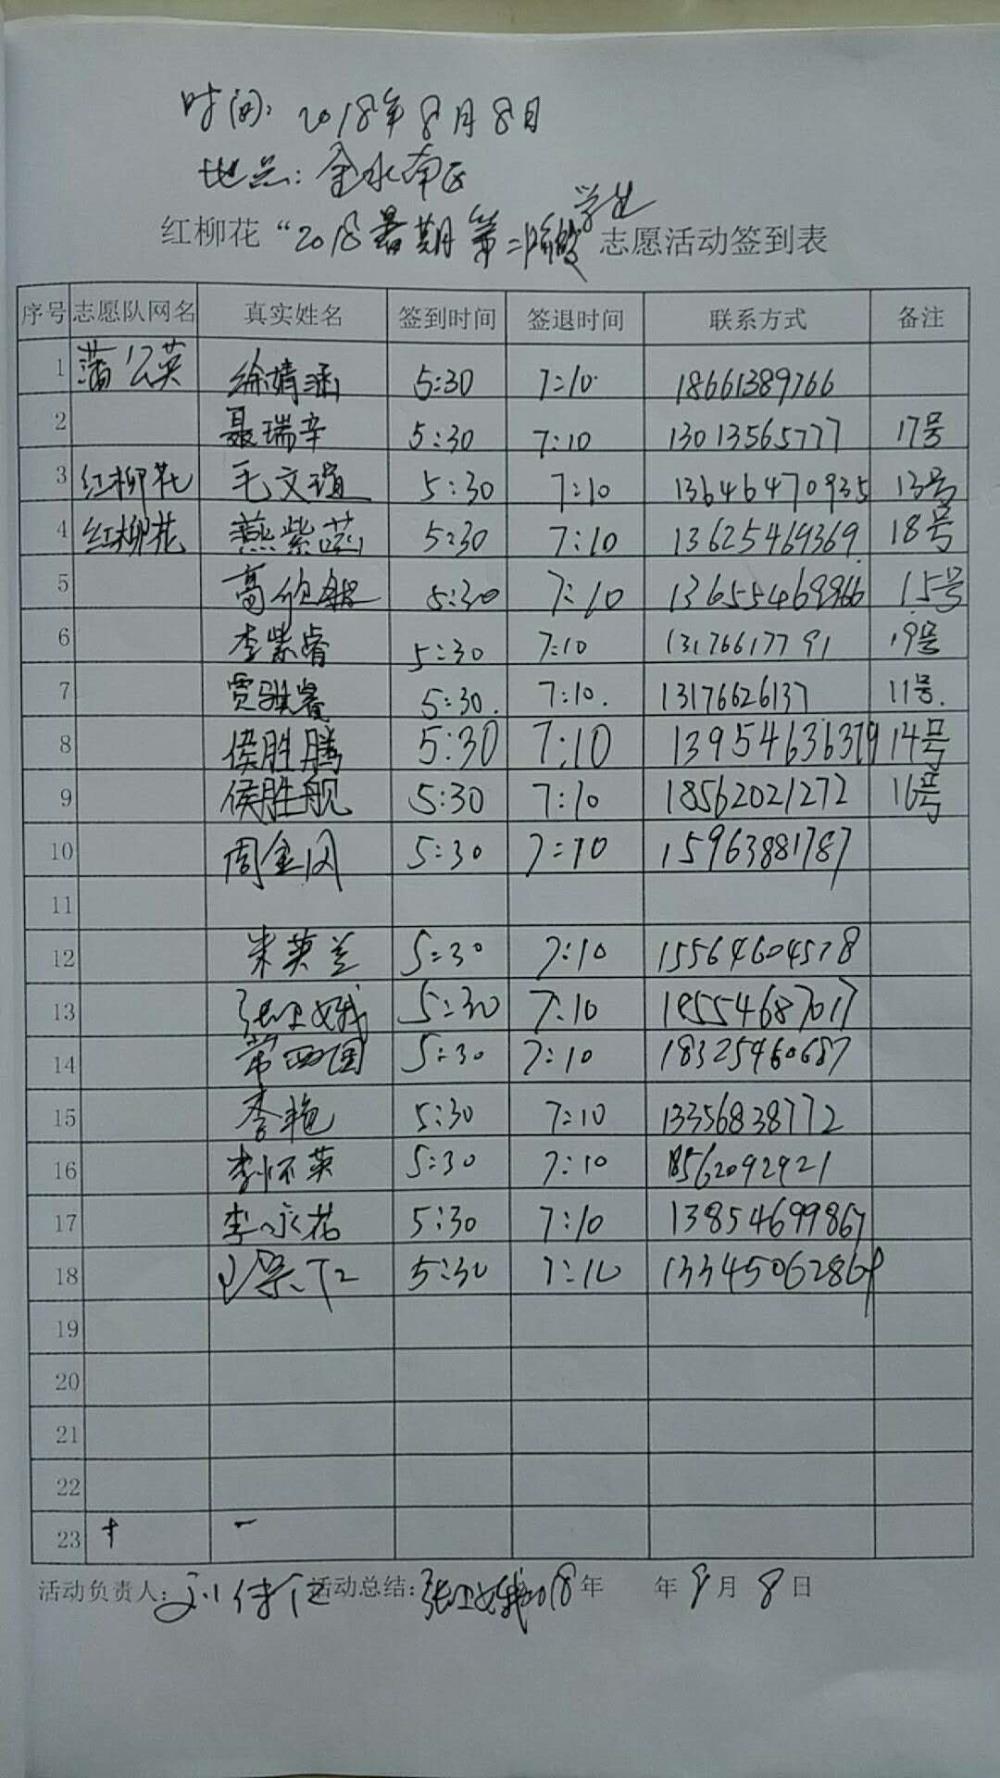 时间: 2018年8月8日
地点: 金水南区
学生
红柳花“2018暑期第二阶段 志愿活动签到表
序号 志愿队网名 真实姓名 签到时间 签退时间 联系方式 备注
1 蒲公英 徐婧涵 5:30 7:10 18661389766
2 聂瑞辛 5:30 7:10 13013565777 17号
3 红柳花 毛文瑄 5:30 7:10 13646470935 13号
4 红柳花 燕紫蕊 5:30 7:10 13625469369 18号
5 高 5:30 7:10 13655469966 15号
6 李紫睿 5:30 7:10 13176617791 19号
7 贾骐睿 5:30 7:10 13176626137 11号
8 侯胜腾 5:30 7:10 13954636379 14号
9 侯胜舰 5:30 7:10 18562021272 16号
10 周金 5:30 7:10 15963881787
11
12 朱英兰 5:30 7:10 15564604578
13 张卫娥 5:30 7:10 18554687017
14 常四国 5:30 7:10 18325460687
15 李艳 5:30 7:10 13356838772
16 李怀英 5:30 7:10 18562092921
17 李永花 5:30 7:10 13854699867
18 5:30 7:10 13345062869
19
20
21
22
23 + -
活动负责人: 活动总结: 张卫娥 2018年 年 9月 8日